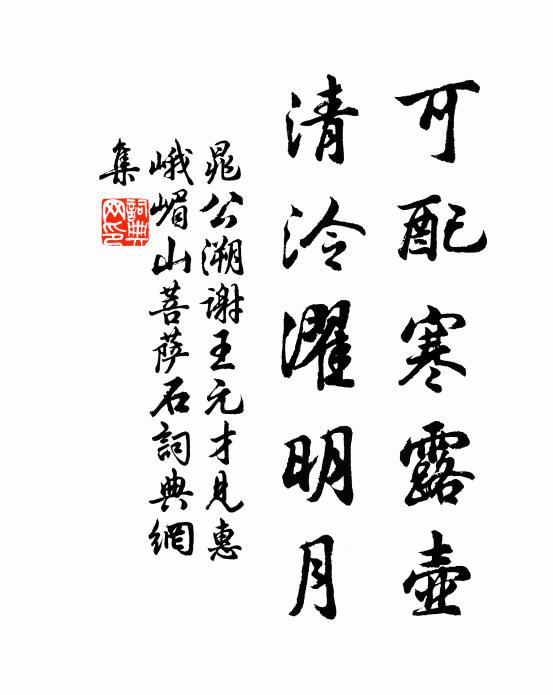 可配寒露壺
清泠濯明月
晁公溯謝王元才見惠
峨嵋山菩薩石詞典網
集
詞典網印